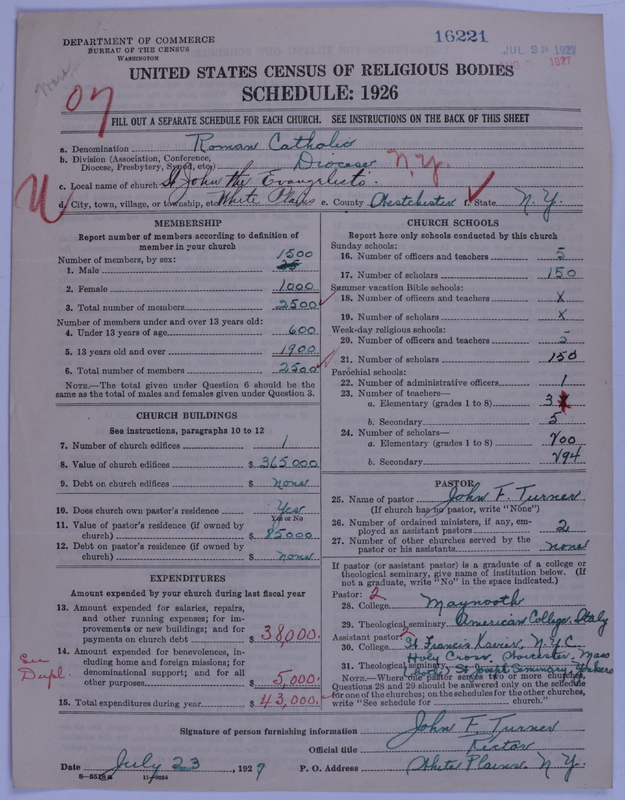 DEPARTMENT OF COMMERCE
BUREAU OF THE CENSUS
WASHINGTON
16221
JUL 29 1927
AUG 5 1927
UNITED STATES CENSUS OF RELIGIOUS BODIES
SCHEDULE: 1926
07
FILL OUT A SEPARATE SCHEDULE FOR EACH CHURCH. SEE INSTRUCTIONS ON THE BACK OF THIS SHEET
a. Denomination Roman Catholic
b. Division (Association, Conference, Diocese, Presbytery, Synod, etc) Diocese N.Y.
c. Local name of church St John the Evangelist's
U
d. City, town, village, or township, etc White Plains e. County Westchester f. State N.Y.
MEMBERSHIP
Report number of members according to definition of
member in your church
Number of members, by sex:
1. Male 1500
2. Female 1000
3. Total number of members 2500
Number of members under and over 13 years old:
4. Under 13 years of age 600
5. 13 years old and over 1900
6. Total number of members 2500
NOTE.—The total given under Question 6 should be
same as the total of males and females given under Question 3.
CHURCH BUILDINGS
See instructions, paragraphs 10 to 12
7. Number of church edifices 1
8. Value of church edifices $ 365,000
9. Debt on church edifices $ none
10. Does church own pastor's residence Yes
Yes or No
11. Value of pastor's residence (if owned by
church) $ 85000
12. Debt on pastor's residence (if owned by
church) $ none
EXPENDITURES
Amount expended by your church during last fiscal year
13. Amount expended for salaries, repairs,
and other running expenses; for im-
provements or new buildings; and for
payments on church debt $ 38,000.
14. Amount expended for benevolences, in-
cluding home and foreign missions; for
denominational support; and for all
other purposes $ 5,000.
See
Dupl.
15. Total expenditures during year $ 43,000.
CHURCH SCHOOLS
Report here only schools conducted by this church
Sunday schools:
16. Number of officers and teachers 5
17. Number of scholars 150
Summer vacation Bible schools:
18. Number of officers and teachers X
19. Number of scholars X
Week-day religious schools:
20. Number of officers and teachers 5
21. Number of scholars 150
Parochial schools:
22. Number of administrative officers 1
23. Number of teachers—
a. Elementary (grades 1 to 8) 3
b. Secondary 5
24. Number of scholars—
a. Elementary (grades 1 to 8)
b. Secondary
PASTOR
25. Name of pastor John F. Turner
(If church has no pastor, write "None")
26. Number of ordained ministers, if any, em-
ployed as assistant pastors 2
27. Number of other churches served by the
pastor or his assistants none
If pastor (or assistant pastor) is a graduate of a college or
theological seminary, give name of institution below. (If
not a graduate, write "No" in the space indicated.)
Pastor: 2
28. College Maynooth
29. Theological seminary American College, Italy
Assistant pastor:
30. College St Francis Xavier, N.Y.C.
Holy Cross Worcester, Mass
31. Theological seminary St Joseph Seminary, Yonkers
NOTE.—Where one pastor serves two or more churches,
Questions 28 and 29 should be answered only on the schedule
for one of the churches; on the schedules for the other churches,
write "See schedule for church."
Signature of person furnishing information John F. Turner
Official title Rector
Date July 23, 1927 P. O. Address White Plains N.Y.